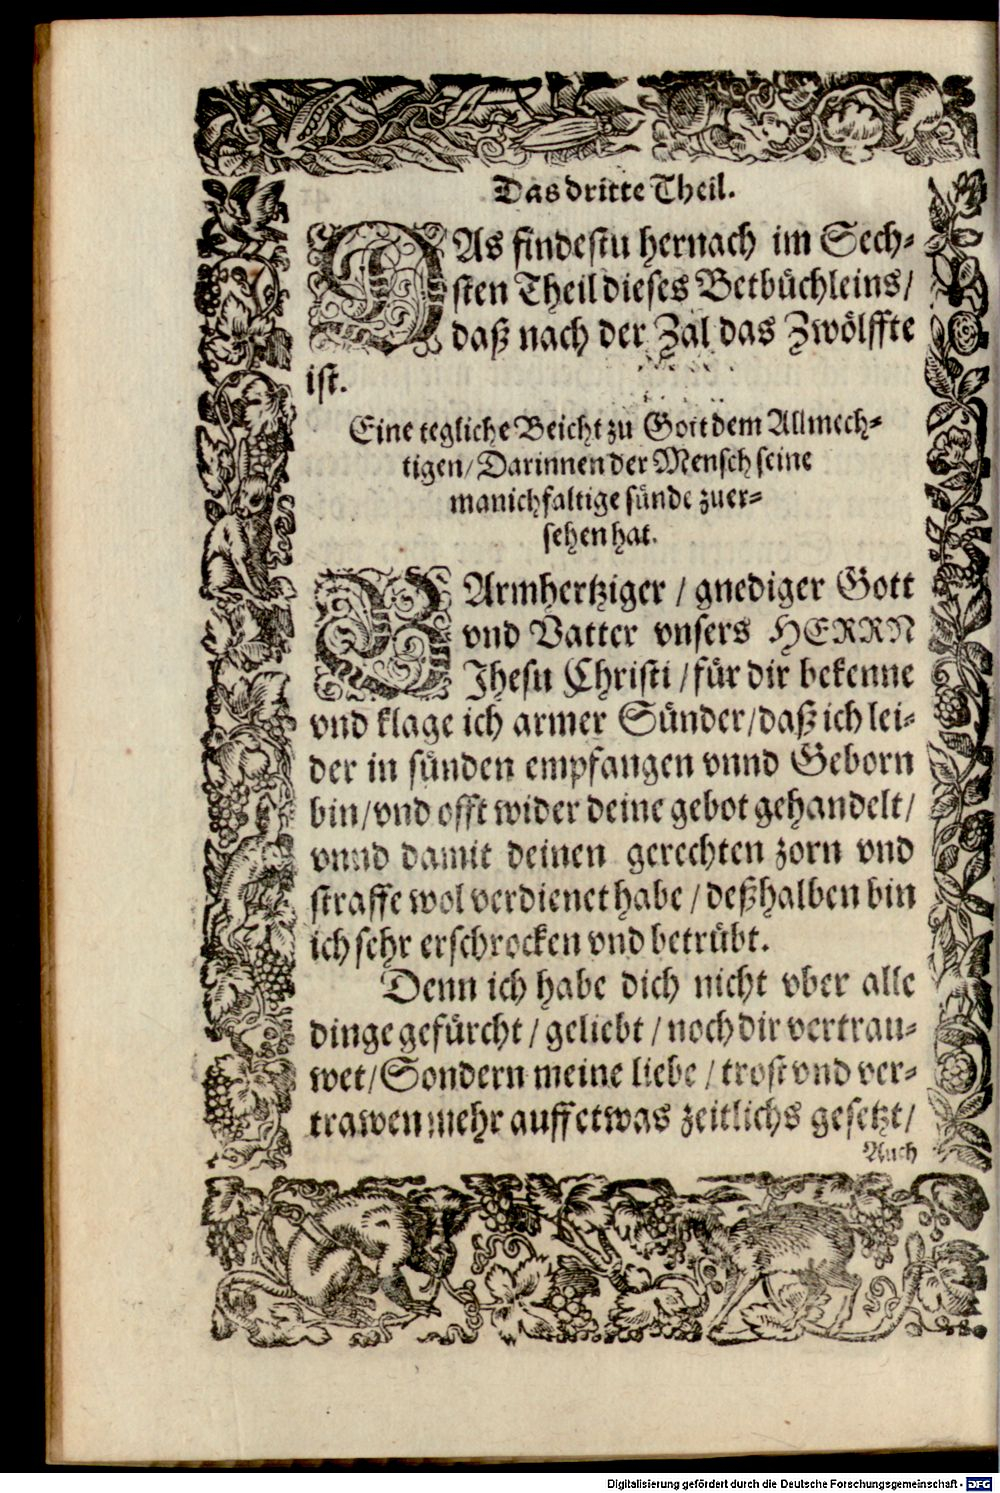 Das dritte Theil.
DAs findestu hernach im Sech-
sten Theil dieses Betbüchleins/
daß nach der Zal das Zwölffte
ist.
Eine tegliche Beicht zu Gott dem Allmech-
tigen/ Darinnen der Mensch seine
manichfaltige sünde zuer-
sehen hat.
BArmhertziger / gnediger Gott
vnd Vatter vnsers HERRN
Jhesu Christi / für dir bekenne
vnd klage ich armer Sünder/ daß ich lei-
der in sünden empfangen vnnd Geborn
bin/ vnd offt wider deine gebot gehandelt/
vnnd damit deinen gerechten zorn vnd
straffe wol verdienet habe / deßhalben bin
ich sehr erschrocken vnd betrübt.
Denn ich habe dich nicht vber alle
dinge gefürcht / geliebt / noch dir vertrau-
wet/ Sondern meine liebe / trost vnd ver-
trawen mehr auff etwas zeitlichs gesetzt/
Auch
Digitalisierung gefördert durch die Deutsche Forschungsgemeinschaft - DFG